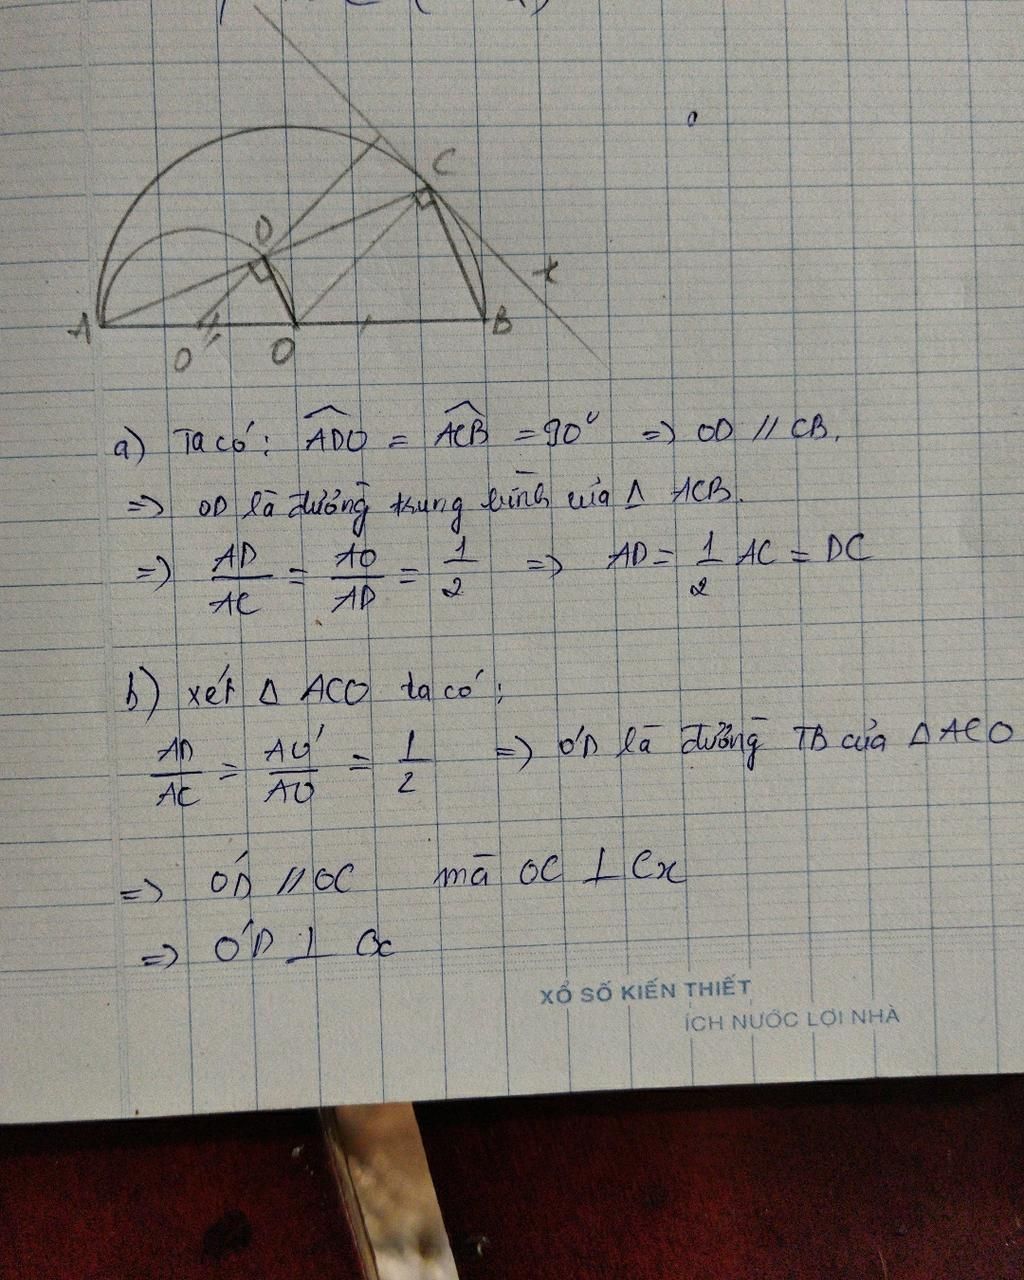 C
D
x
A
B
O'
O
a) Ta có: ADO = ACB = 90° => OD // CB.
=> OD là đường trung bình của Δ ACB.
=> AD/AC = AO/AD = 1/2 => AD = 1/2 AC = DC
b) xét Δ ACO ta có:
AD/AC = AO'/AO = 1/2 => O'D là đường TB của Δ ACO
=> O'D // OC mà OC ⊥ Cx
=> O'D ⊥ Cx
XỔ SỐ KIẾN THIẾT
ÍCH NƯỚC LỢI NHÀ